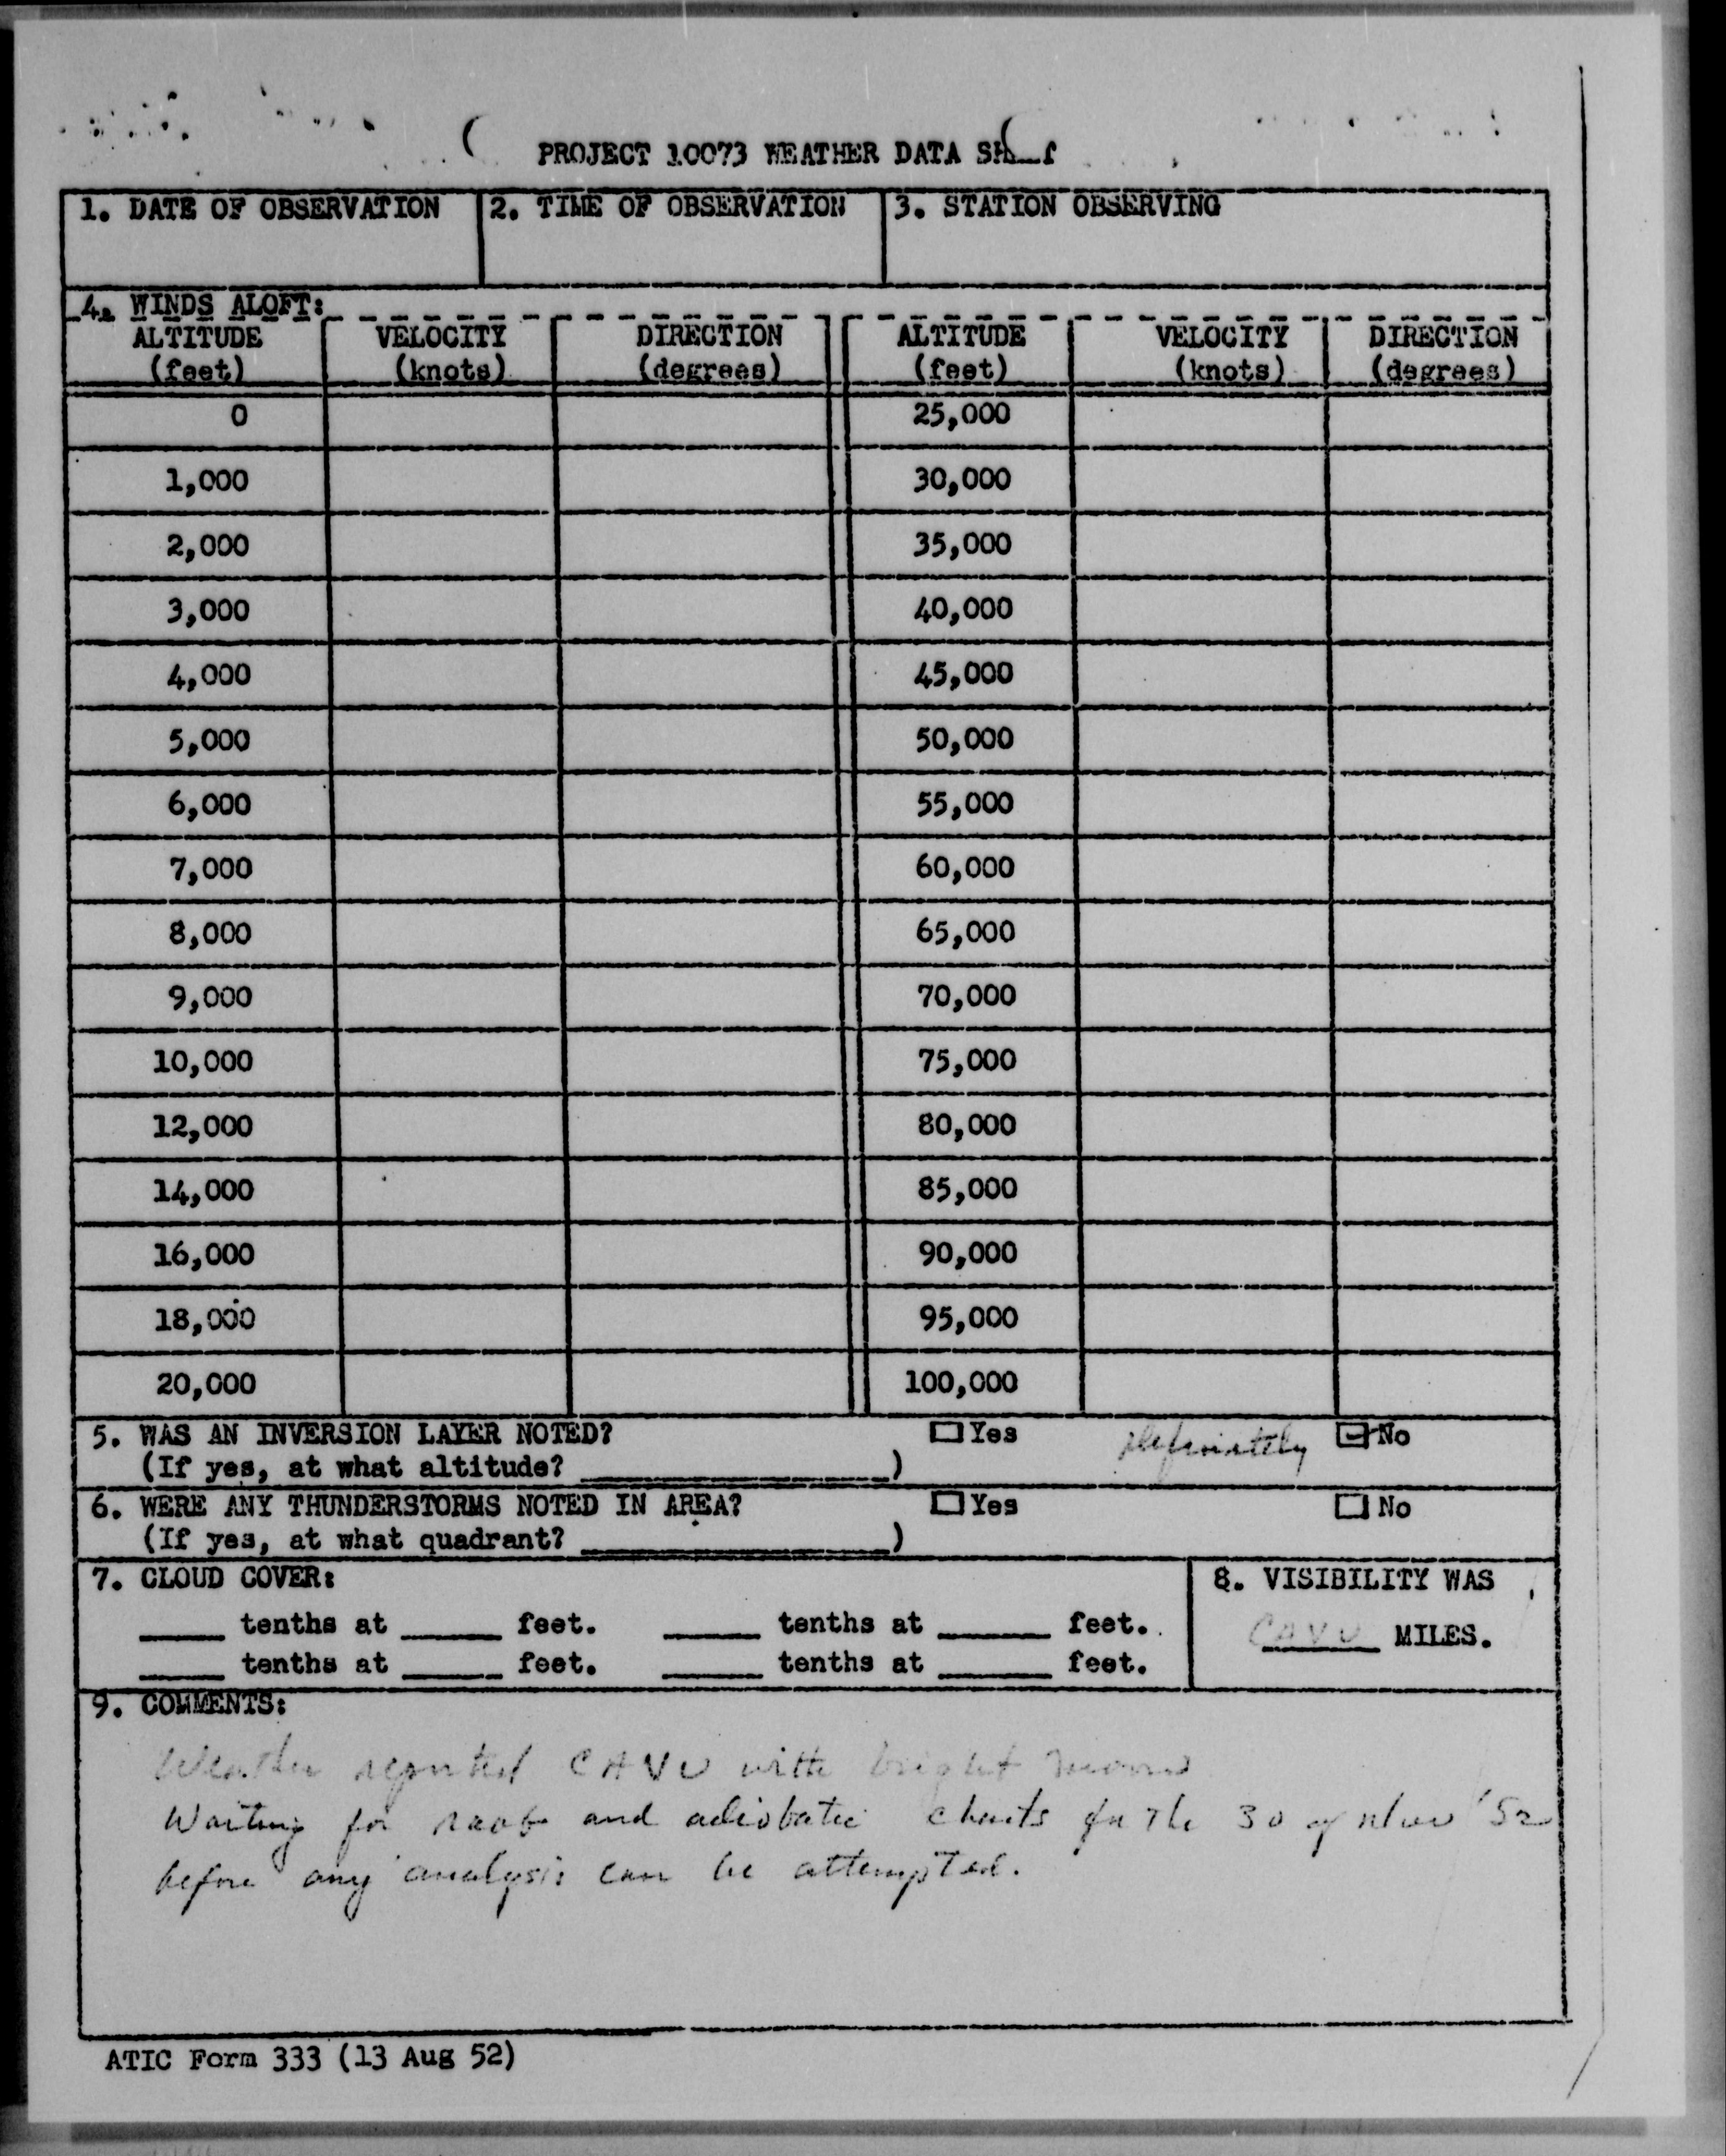 PROJECT 10073 WEATHER DATA
1. DATE OF OBSERVATION 2. TIME OF OBSERVATION 3. STATION OBSERVING
4. WINDS ALOFT:
ALTITUDE VELOCITY DIRECTION ALTITUDE VELOCITY DIRECTION
(feet) (knots) (degrees) (feet) (knots) (degrees)
0 25,000
1,000 30,000
2,000 35,000
3,000 40,000
4,000 45,000
5,000 50,000
6,000 55,000
7,000 60,000
8,000 65,000
9,000 70,000
10,000 75,000
12,000 80,000
14,000 85,000
16,000 90,000
18,000 95,000
20,000 100,000
5. WAS AN INVERSION LAYER NOTED? Yes definitely No
(If yes, at what altitude? )
6. WERE ANY THUNDERSTORMS NOTED IN AREA? Yes No
(If yes, at what quadrant? )
7. CLOUD COVER: 8. VISIBILITY WAS
tenths at feet. tenths at feet. CAVU MILES.
tenths at feet. tenths at feet.
9. COMMENTS:
Weather reported CAVU with bright moon
Waiting for raobs and adiobatic charts for the 30 of Nov '52
before any analysis can be attempted.
ATIC Form 333 (13 Aug 52)